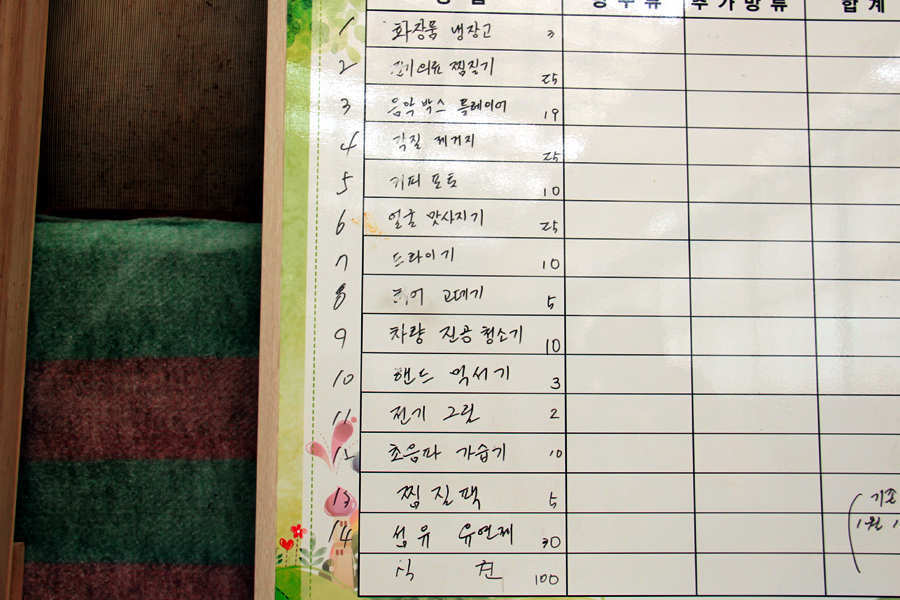 합계
1 화장품 냉장고 3
2 찜질기 25
3 음악박스 플레이어 19
4 각질 제거지 25
5 커피 포토 10
6 얼굴 맛사지기 25
7 드라이기 10
8 고데기 5
9 차량 진공청소기 10
10 핸드 믹서기 3
11 전기 그릴 2
12 초음파 가습기 10
13 찜질팩 5
14 섬유 유연제 30
100